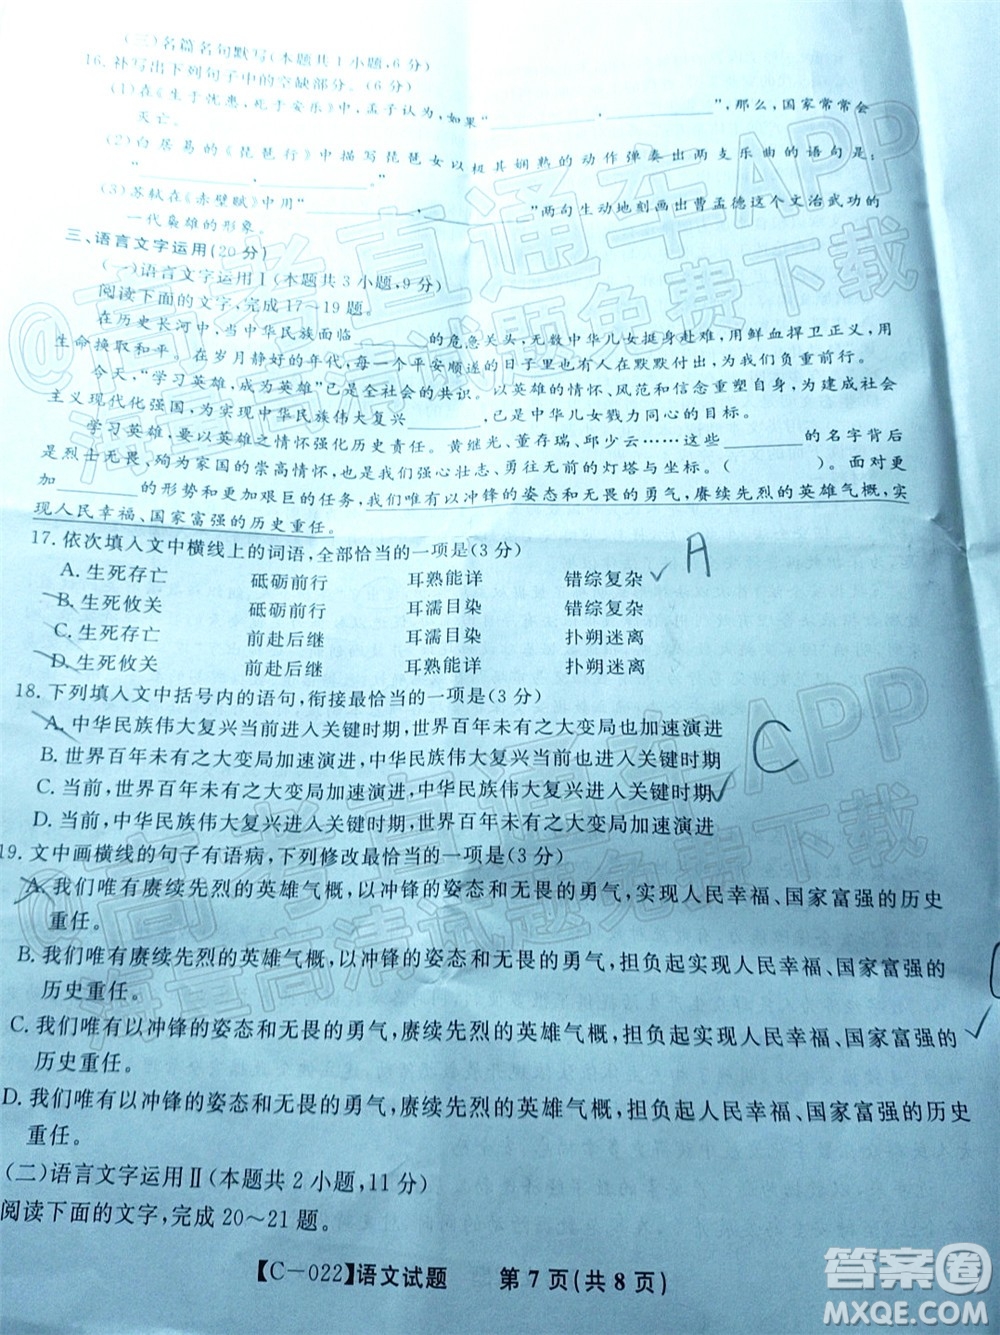 (三)名篇名句默写(本题共1小题,6分)
16.补写出下列句子中的空缺部分。(6分)
(1)在《生于忧患,死于安乐》中,孟子认为,如果“________,________”,那么,国家常常会
灭亡。
(2)白居易的《琵琶行》中描写琵琶女以极其娴熟的动作弹奏出两支乐曲的语句是:
“________,________”。
(3)苏轼在《赤壁赋》中用“________,________”两句生动地刻画出曹孟德这个文治武功的
一代枭雄的形象。
三、语言文字运用(20分)
(一)语言文字运用Ⅰ(本题共3小题,9分)
阅读下面的文字,完成17～19题。
在历史长河中,当中华民族面临________的危急关头,无数中华儿女挺身赴难,用鲜血捍卫正义,用
生命换取和平。在岁月静好的年代,每一个平安顺遂的日子,都有人在默默付出、负重前行。
今天,“学习英雄,成为英雄”已是全社会的共识。以英雄的情怀、风范和信念重塑人格,加快建成社会
主义现代化强国,实现中华民族伟大复兴________,已是中华儿女戮力同心的目标。
学习英雄,要以英雄之情怀强化责任担当。黄继光、董存瑞、邱少云……这些________的名字背后
是烈士无畏、殉为家国的崇高情怀,也是我们强心壮志、勇往无前的灯塔与坐标。(　　)。面对更
加________的形势和更加艰巨的任务,我们唯有以冲锋的姿态和无畏的勇气,赓续先烈的英雄气概,实
现人民幸福、国家富强的历史重任。
17.依次填入文中横线上的词语,全部恰当的一项是(3分)
A.生死存亡 砥砺前行 耳熟能详 错综复杂 A
B.生死攸关 砥砺前行 耳濡目染 错综复杂
C.生死存亡 前赴后继 耳濡目染 扑朔迷离
D.生死攸关 前赴后继 耳熟能详 扑朔迷离
18.下列填入文中括号内的语句,衔接最恰当的一项是(3分)
A.中华民族伟大复兴当前进入关键时期,世界百年未有之大变局也加速演进
B.世界百年未有之大变局加速演进,中华民族伟大复兴当前进入关键时期 C
C.当前,世界百年未有之大变局加速演进,中华民族伟大复兴进入关键时期
D.当前,中华民族伟大复兴进入关键时期,世界百年未有之大变局加速演进
19.文中画横线的句子有语病,下列修改最恰当的一项是(3分)
A.我们唯有赓续先烈的英雄气概,以冲锋的姿态和无畏的勇气,实现人民幸福、国家富强的历史
重任。
B.我们唯有赓续先烈的英雄气概,以冲锋的姿态和无畏的勇气,担负起实现人民幸福、国家富强的
历史重任。
C.我们唯有以冲锋的姿态和无畏的勇气,赓续先烈的英雄气概,担负起实现人民幸福、国家富强的
历史重任。
D.我们唯有以冲锋的姿态和无畏的勇气,赓续先烈的英雄气概,担起人民幸福、国家富强的历史
重任。
(二)语言文字运用Ⅱ(本题共2小题,11分)
阅读下面的文字,完成20～21题。
【C-022】语文试题 第7页(共8页)
@高考直通车APP
海量高清试题免费下载
@高考直通车APP
海量高清试题免费下载
答案圈
MXQE.COM